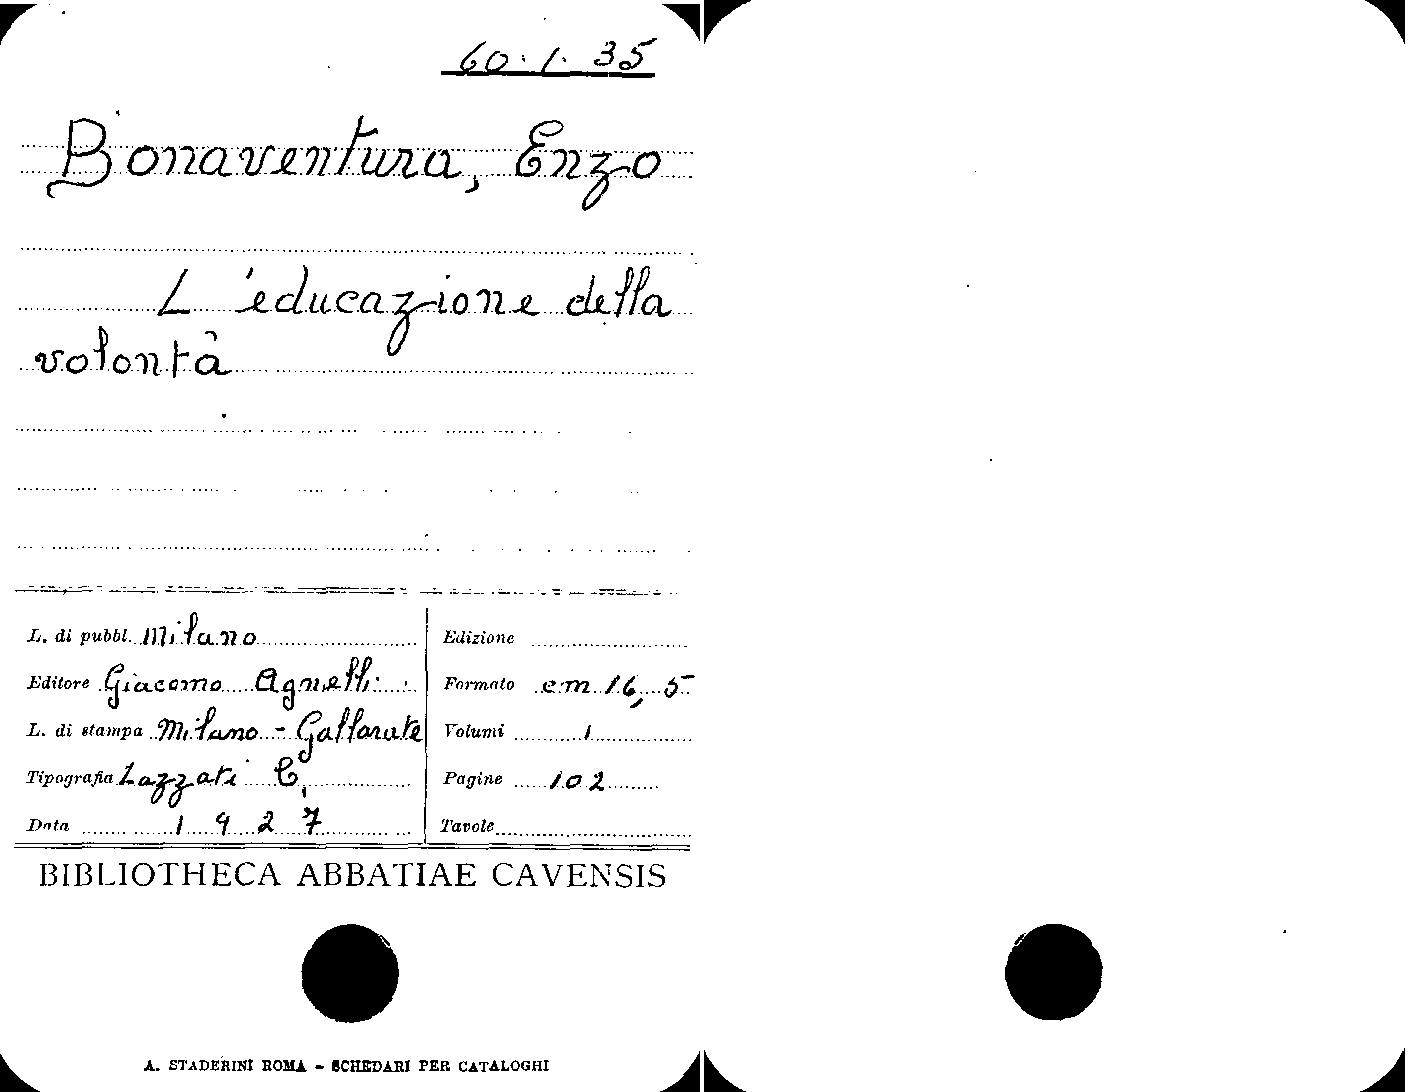 60.1.35
Bonaventura, Enzo
L'educazione della
volontà
L. di pubbl. Milano
Editore Giacomo Agnelli
L. di stampa Milano - Gallarate
Tipografia Lazzati C.
Data 1927
Edizione
Formato cm 16,5
Volumi 1
Pagine 102
Tavole
BIBLIOTHECA ABBATIAE CAVENSIS
A. STADERINI ROMA - SCHEDARI PER CATALOGHI